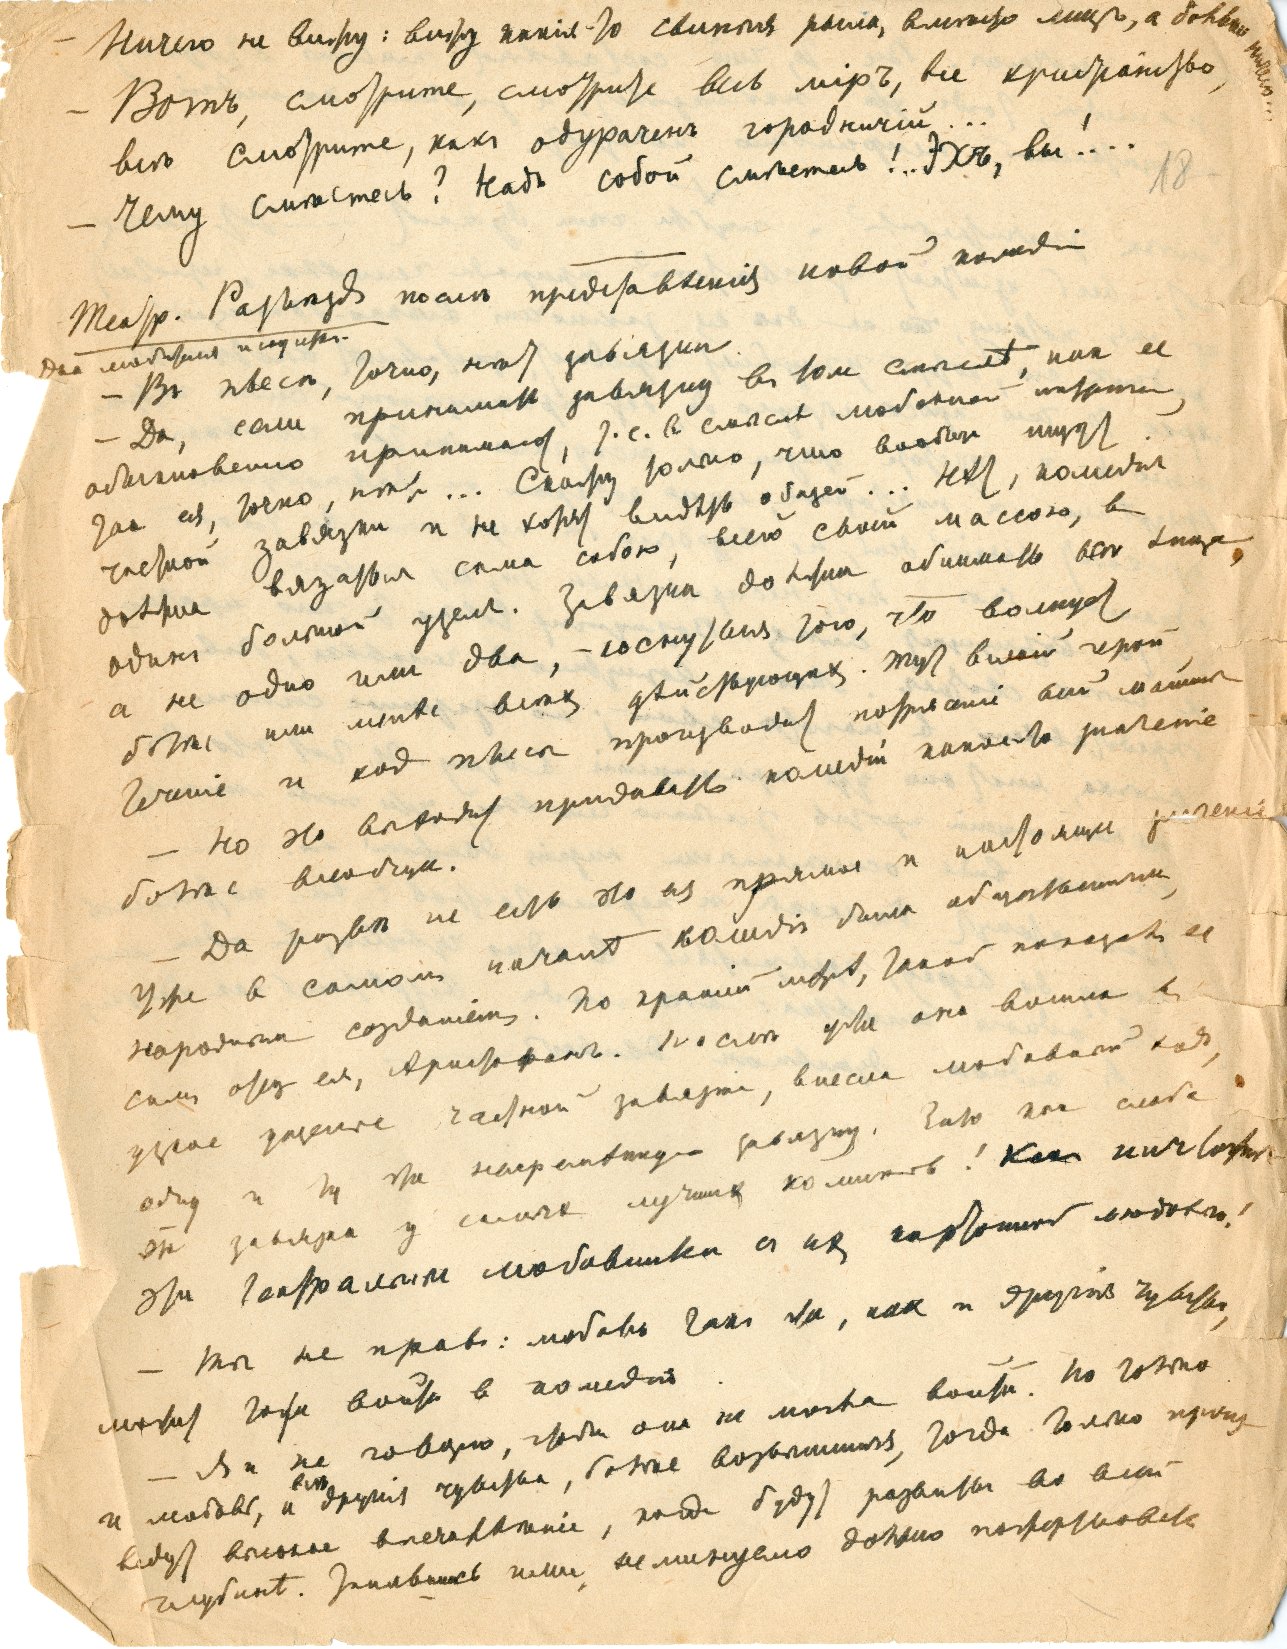 — Ничего не вижу: вижу какiя-то свиныя рыла, вместо лицъ, а больше ничего...
— Вотъ, смотрите, смотрите весь мiръ, все христiанство,
все смотрите, какъ одураченъ городничiй...
— Чему смѣетесь? Надъ собой смѣетесь!.. Эхъ, вы!....
18
Театр. Разъѣздъ послѣ представленiя новой комедiи
Два любителя искусствъ.
— Въ пьесѣ, точно, нѣт завязки.
— Да, если принимать завязку в том смыслѣ, как ее
обыкновенно принимают, т.е. в смыслѣ любовной интриги,
так ея, точно, нѣт... Скажу только, что вообще ищут
частной завязки и не хотят видѣть общей... Нѣт, комедiя
должна вязаться сама собою, всей своей массою, в
один большой узел. Завязка должна обнимать всѣ лица,
а не одно или два, – коснуться того, что волнует
болѣе или менѣе всѣх дѣйствующих. Тут всякiй герой
теченiе и ход пьесы производит потрясенiе всей машины
— Но это выходит придавать комедiи какое-то значенiе
болѣе всеобщее.
— Да развѣ не есть это ея прямое и настоящее значенiе
Уже в самом началѣ комедiя была общественным,
народным созданiем. По крайней мѣрѣ, такой показал ее
сам отец ея, Аристофанъ. Послѣ уже она вошла в
узкое ущелье частной завязки, внесла любовный ход,
одну и ту же непремѣнную завязку. Зато как слаба
эта завязка у самых лучших комиков! Как ничтожны
эти театральные любовники с их картонной любовью!
— Ты не прав: любовь так же, как и другiя чувства,
может тоже войти в комедiю.
— Я и не говорю, чтобы она не могла войти. Но только
и любовь, и всѣ другiя чувства, болѣе возвышенныя, тогда только произ-
ведут высокое впечатлѣнiе, когда будут развиты во всей
глубинѣ. Занявшись ими, неминуемо должно пожертвовать